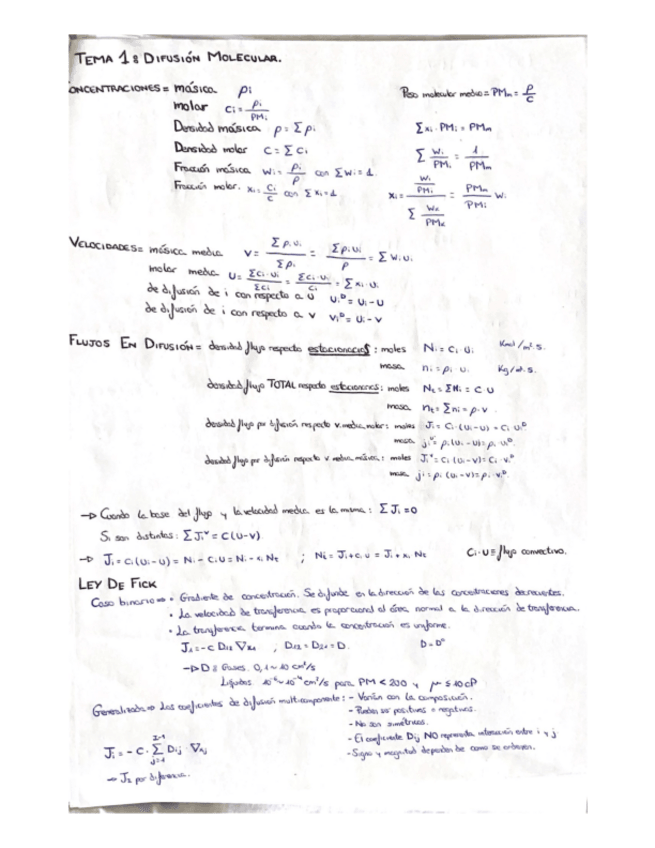 TEMA 1: DIFUSIÓN MOLECULAR.
ONCENTRACIONES = másica ρi Peso molecular medio = PMm = ρ/c
molar ci = ρi/PMi
Densidad másica ρ = Σρi Σxi·PMi = PMm
Densidad molar C = ΣCi Σ wi/PMi = 1/PMm
Fracción másica wi = ρi/ρ con Σwi = 1.
Fracción molar. xi = ci/c con Σxi = 1 xi = (wi/PMi)/(Σ wk/PMk) = PMm/PMi wi
VELOCIDADES = másica media V = Σρi·vi/Σρi = Σρi vi/ρ = Σwi vi
molar media U = Σci·vi/Σci = Σci·vi/ci = Σxi·vi
de difusión de i con respecto a U Ui^D = Ui - U
de difusión de i con respecto a v Vi^D = Ui - V
FLUJOS EN DIFUSIÓN = densidad flujo respecto estacionarios: moles Ni = ci·ui Kmol/m²·s.
masa ni = ρi·ui Kg/m²·s.
densidad flujo TOTAL respecto estacionarios: moles Nt = ΣNi = C U
masa nt = Σni = ρ·v
densidad flujo por difusión respecto v. media molar: moles Ji = Ci·(Ui-U) = Ci Ui^D
masa ji^U = ρi(Ui-U) = ρi Ui^D
densidad flujo por difusión respecto v media másica: moles Ji^V = Ci(Ui-V) = Ci·Vi^D
masa ji = ρi(Ui-V) = ρi·Vi^D
→ Cuando la base del flujo y la velocidad media es la misma: ΣJi = 0
Si son distintas: ΣJi^V = C(U-V)
→ Ji = Ci(Ui-U) = Ni - Ci U = Ni - xi Nt ; Ni = Ji + ci u = Ji + xi Nt Ci·U ≡ flujo convectivo.
LEY DE FICK
Caso binario ⇒ • Gradiente de concentración. Se difunde en la dirección de las concentraciones decrecientes.
• La velocidad de transferencia es proporcional al área normal a la dirección de transferencia.
• La transferencia termina cuando la concentración es uniforme.
J1 = -C D12 ∇x1 ; D12 = D21 = D. D = D°
→ D: Gases. 0,1 ~ 10 cm²/s
Líquidos 10⁻⁶ ~ 10⁻⁴ cm²/s para PM < 200 y μ ≤ 10 cP
Generalizada ⇒ Los coeficientes de difusión multicomponente: - Varían con la composición.
- Pueden ser positivos o negativos.
- No son simétricos.
- El coeficiente Dij NO representa interacción entre i y j
Ji = -C·Σ Dij·∇xj - Signo y magnitud dependen de como se ordenen.
→ Jz por diferencia.